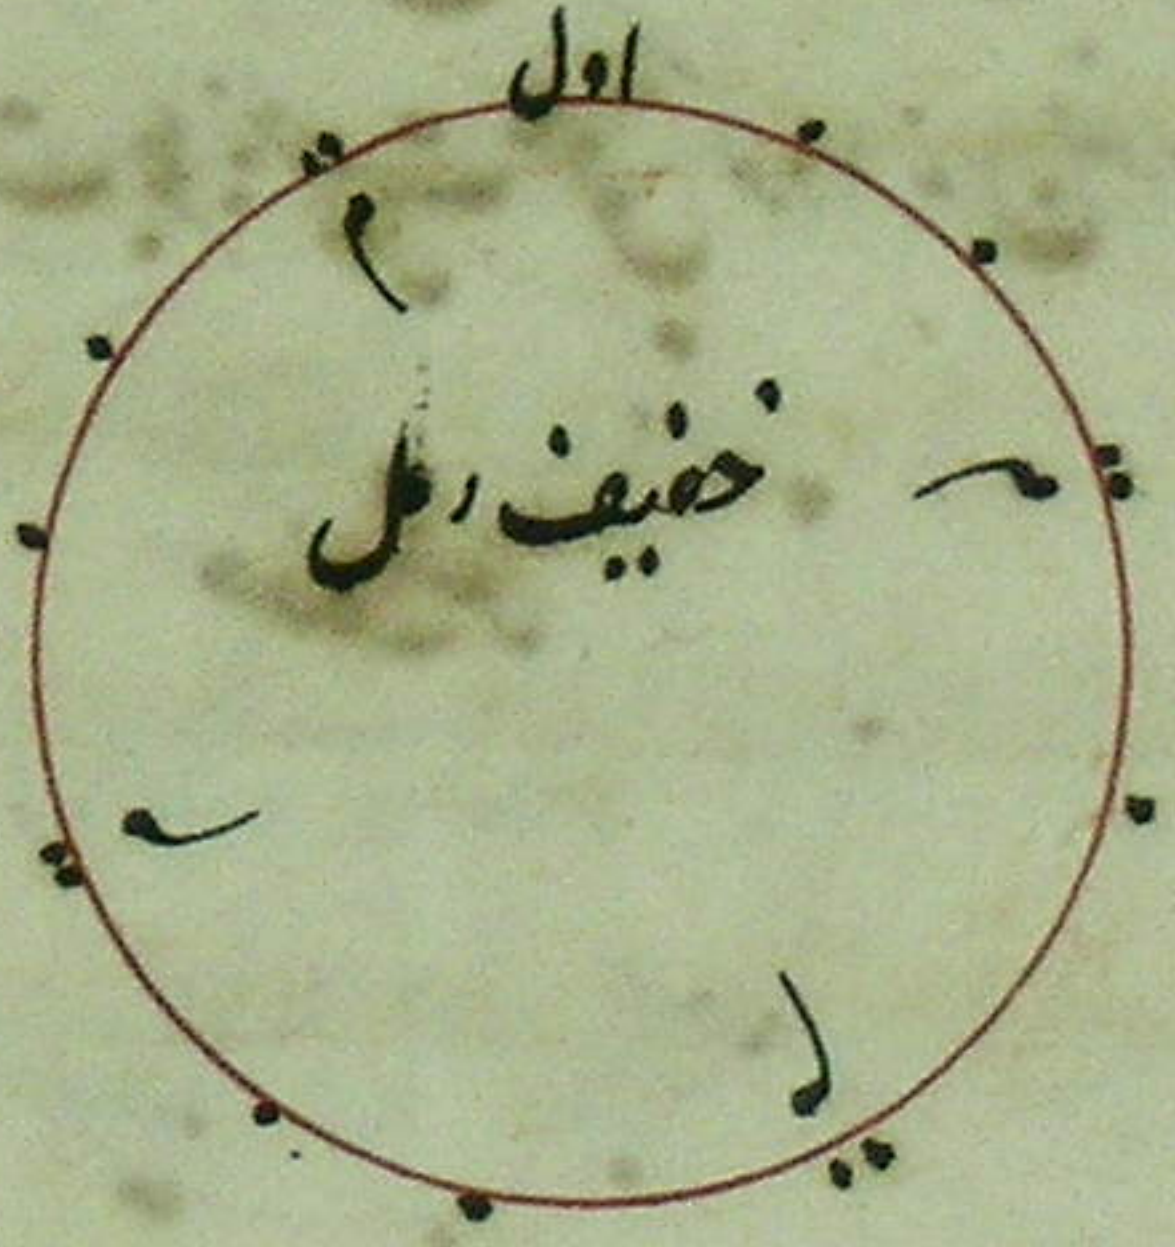 اول
م
خفيف رمل
م
م
م